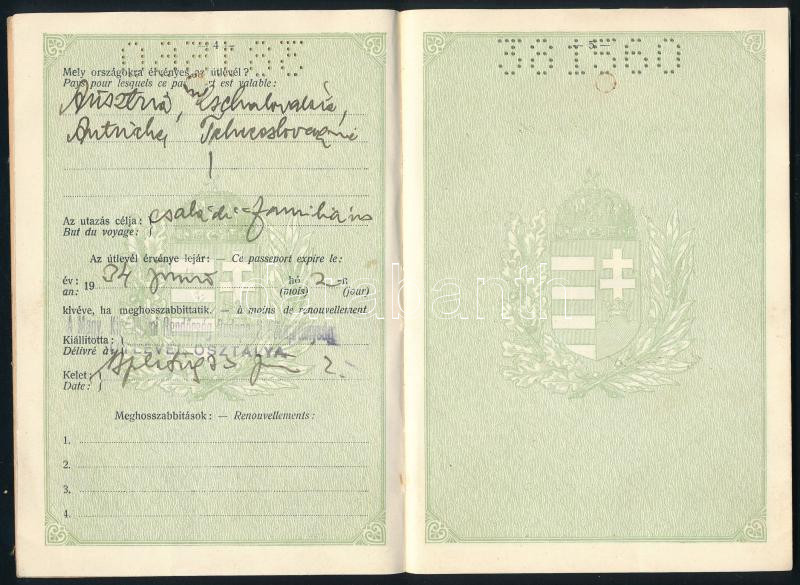 — 4 —
Mely országokra érvényes az útlevél?
Pays pour lesquels ce passeport est valable:
Ausztria,
Autriche,
Az utazás célja: családi – familiaire
But du voyage:
Az útlevél érvénye lejár: — Ce passeport expire le:
év: 1934 hó 2-n
an: (mois) (jour)
kivéve, ha meghosszabbittatik. — à moins de renouvellement.
A Magy. Kir. Rendőrség Budapesti
Kiállította:
ÚTLEVÉLOSZTÁLYA
Délivré à
Kelet: Bpest, 933 2.
Date:
Meghosszabbitások: — Renouvellements:
1.
2.
3.
4.
— 5 —
381560